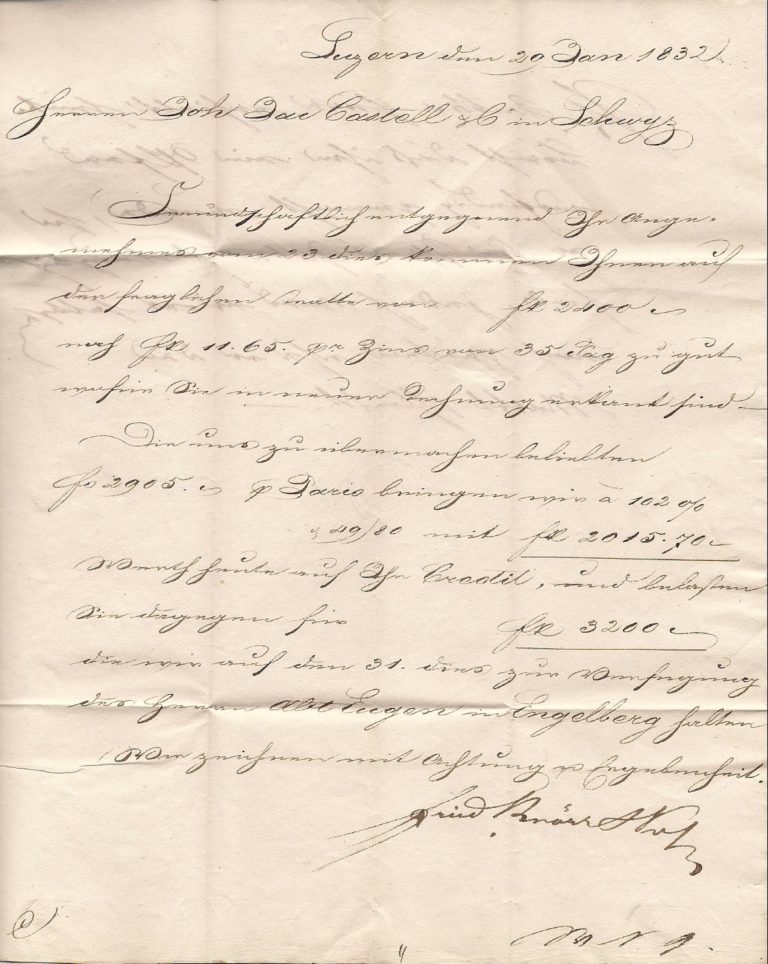 Luzern den 29 Jan 1832
Herren Joh Jac Castell & C° in Schwyz
Freundschaftlich entgegnend Ihr Ange-
nehmes vom 23 dies kommen Ihnen auf
der fraglichen Ratte von fk 2400
noch fk 11.65. pr Zins von 35 Tag zu gut
wofür Sie in neuer Rechnung erkant sind
Die uns zu übermachen beliebten
fs 2905. p Paris bringen wir à 102 %
49/80 mit fk 2015.70
Werth heute auf Ihr Credit, und belasten
Sie dagegen für fk 3200
die wir auf den 31. dies zur Verfügung
des Herrn Abt Eugen in Engelberg halten
Wir zeichnen mit Achtung & Ergebenheit.
Knörr